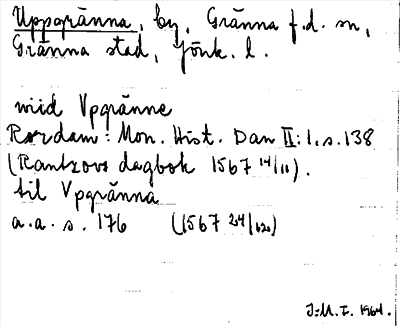 Uppgränna, by, Gränna f.d. sn,
Gränna stad, Jönk. l.
wiid Vpgränne
Rørdam: Mon. Hist. Dan II: 1, s. 138
(Rantzovs dagbok 1567 14/11).
til Vpgränna
a.a. s. 176 (1567 24/12)
J:M. I. 1964.